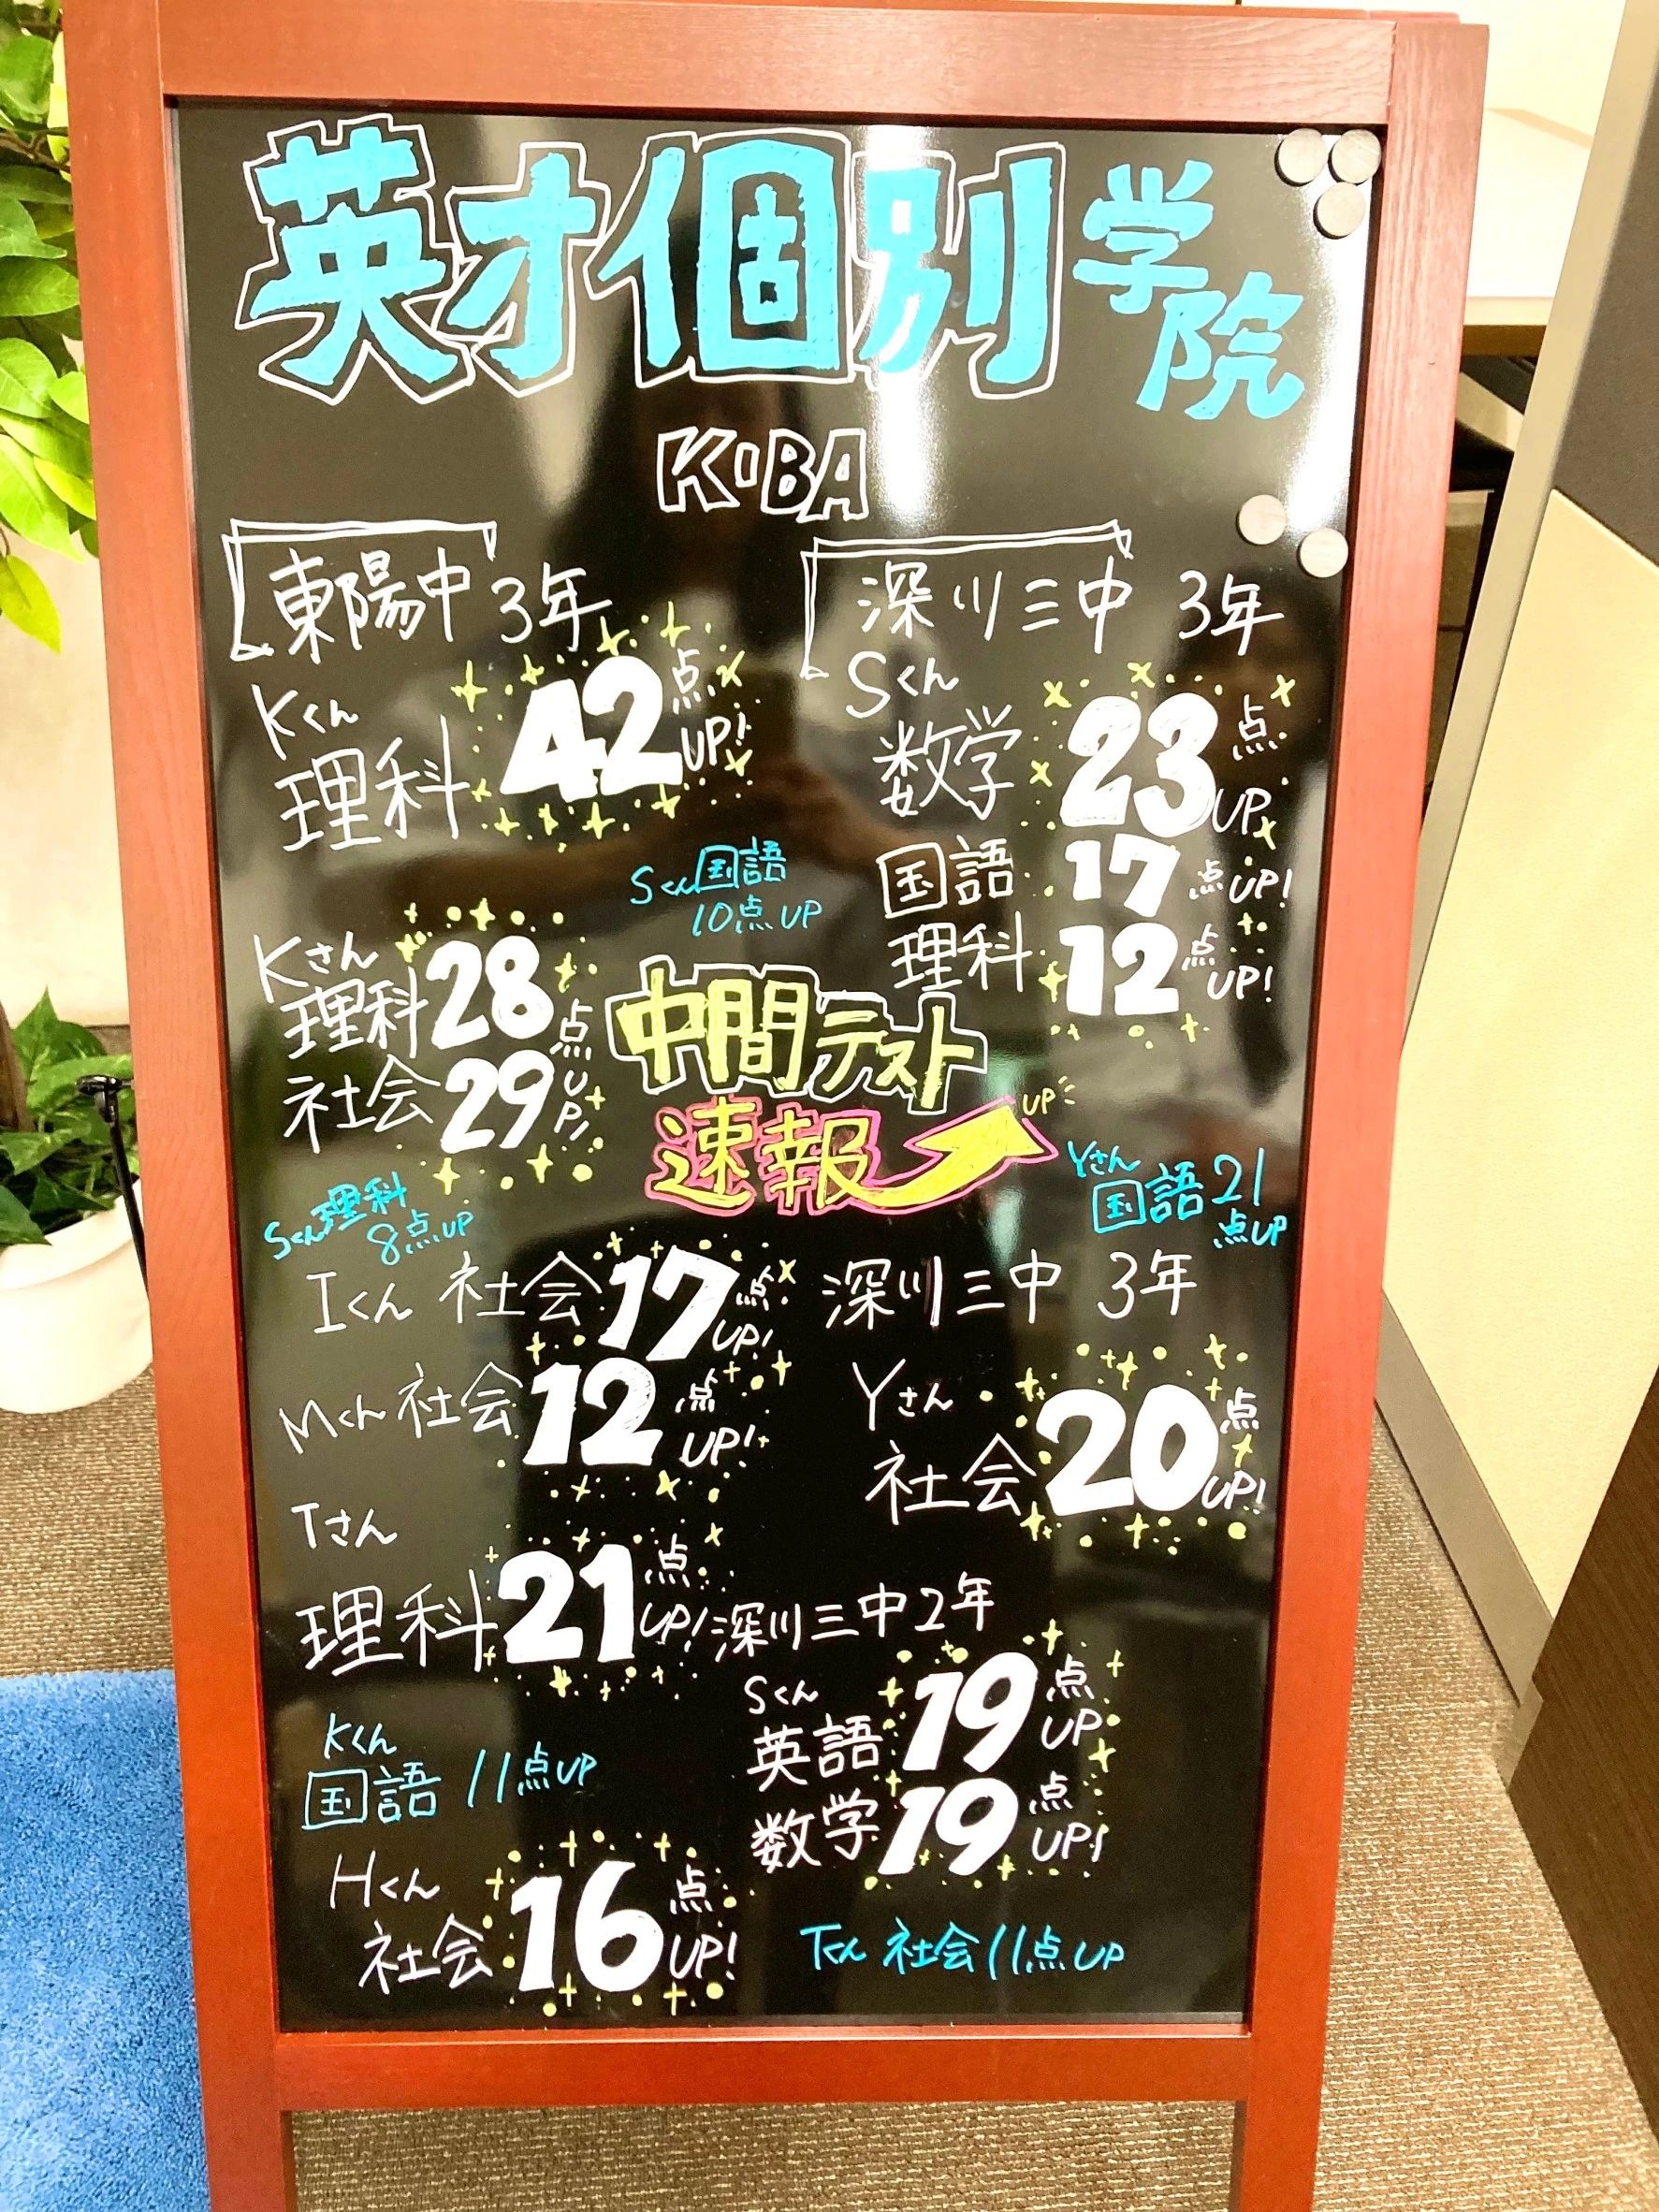 英才個別学院
KIBA
東陽中 3年
Kくん
理科 42点UP!
Sくん国語
10点UP
Kさん
理科 28
社会 29
点UP!
Sくん理科
8点UP
Iくん 社会 17点UP!
Mくん 社会 12点UP!
Tさん
理科 21点UP!
Kくん
国語 11点UP
Hくん
社会 16点UP!
中間テスト
速報
UP
深川三中 3年
Sくん
数学 23点UP
国語 17点UP!
理科 12点UP!
Yさん
国語 21点UP
深川三中 3年
Yさん
社会 20点UP!
深川三中2年
Sくん
英語 19点UP
数学 19点UP!
Tくん 社会 11点UP